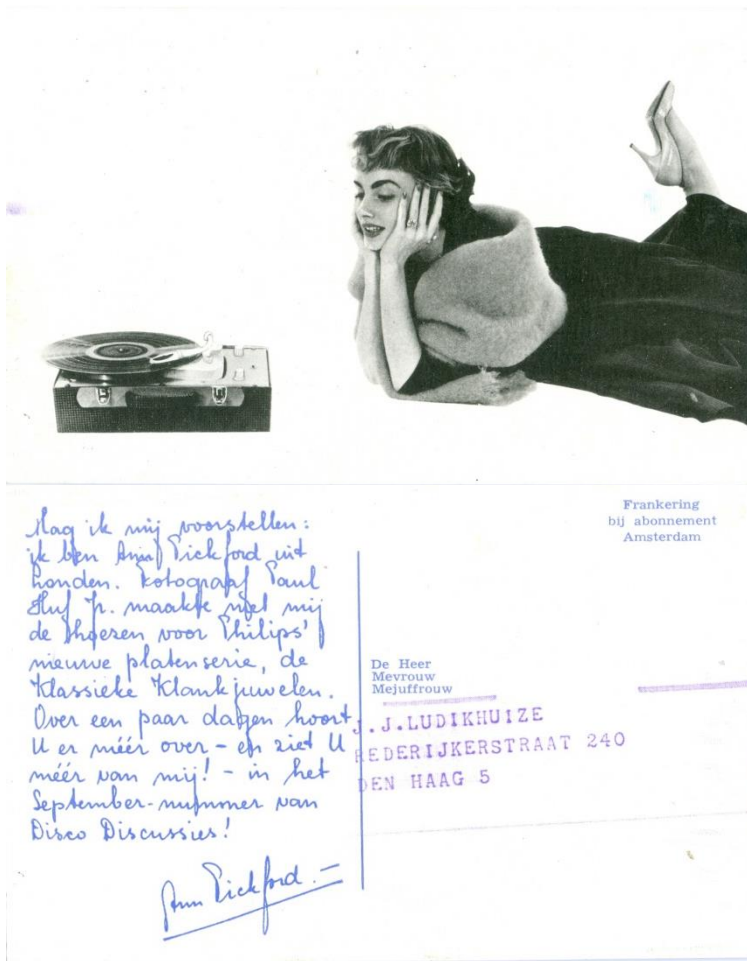 Mag ik mij voorstellen:
ik ben Ann Pickford uit
Londen. Fotograaf Paul
Huf Jr. maakte met mij
de hoezen voor Philips'
nieuwe platenserie, de
Klassieke Klankjuwelen.
Over een paar dagen hoort
U er méér over - en ziet U
méér van mij! - in het
September-nummer van
Disco Discussies!
Ann Pickford.-
Frankering
bij abonnement
Amsterdam
De Heer
Mevrouw
Mejuffrouw
J.J.LUDIKHUIZE
REDERIJKERSTRAAT 240
DEN HAAG 5